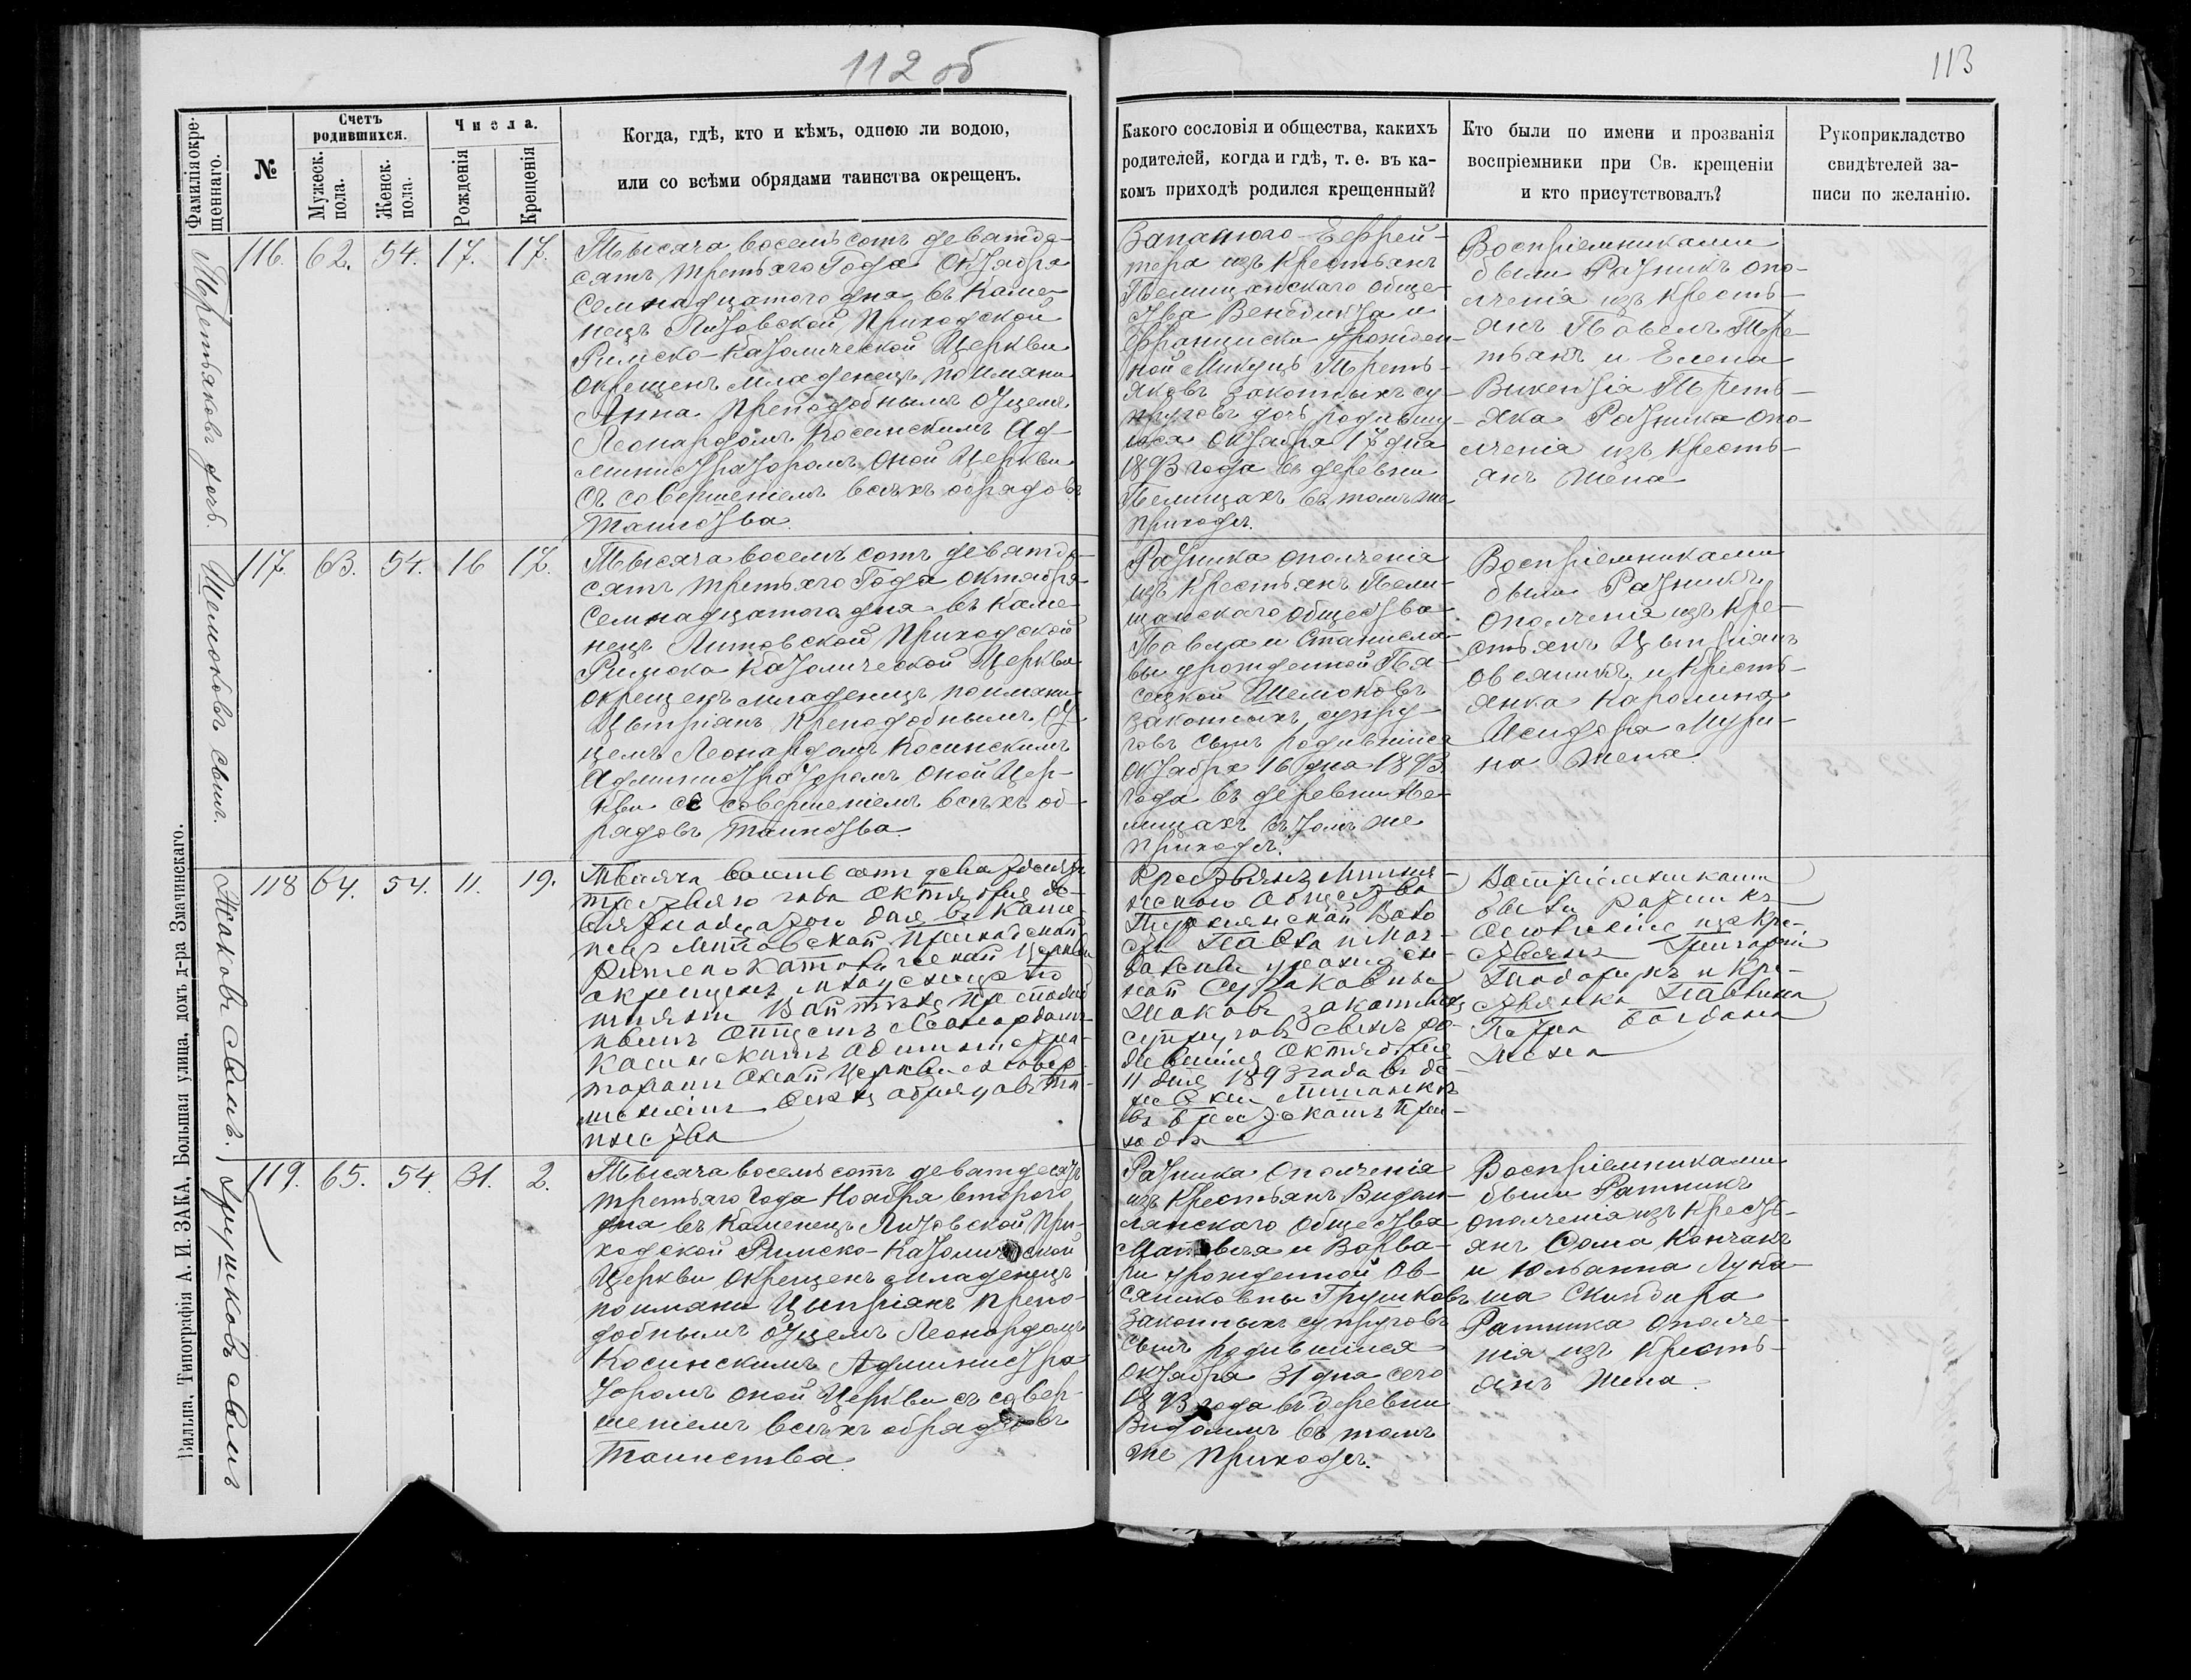 112 об
113
Фамилія окрещеннаго.
№
Счетъ родившихся.
Мужеск. пола.
Женск. пола.
Числа.
Рожденія
Крещенія
Когда, гдѣ, кто и кѣмъ, одною ли водою,
или со всѣми обрядами таинства окрещенъ.
Какого сословія и общества, какихъ
родителей, когда и гдѣ, т. е. въ ка-
комъ приходѣ родился крещенный?
Кто были по имени и прозванія
воспріемники при Св. крещеніи
и кто присутствовалъ?
Рукоприкладство
свидѣтелей за-
писи по желанію.
Третьяковъ дочь.
116. 62. 54. 17. 17.
Тысяча восемьсотъ девятде-
сятъ третьяго Года Октября
Семнадцатого дня въ Каме-
нецъ Литовской Приходской
Римско-Католической Церкви
окрещенъ младенецъ по имяни
Анна Преподобнымъ Отцемъ
Леонардомъ Косинскимъ Ад-
министраторомъ оной Церкви
съ совершеніемъ всѣхъ обрядовъ
Таинства.
Запасного Ефрей-
тера изъ крестьянъ
Пелищанскаго обще-
ства Венедикта и
Франциски урожден-
ной Микуцъ Треть-
яковъ законныхъ су-
пруговъ дочь родившу-
юся Октября 17 дня
1893 года въ деревни
Пелищахъ въ томъ же
приходѣ.
Воспріемниками
были Ратникъ опо-
лченія изъ кресть-
янъ Павелъ Тре-
тьякъ и Елена
Викентія Треть-
яка Ратника опо-
лченія изъ кресть-
янъ Жена
Шемоковъ сынъ.
117. 63. 54. 16 17.
Тысяча восемь сотъ девятде-
сятъ третьяго Года Октября
Семнадцатого дня въ Каме-
нецъ Литовской Приходской
Римско Католической Церкви
окрещенъ младенецъ по имяни
Цыпріанъ Преподобнымъ От-
цемъ Леонардомъ Косинскимъ
Администраторомъ оной Цер-
кви съ совершеніемъ всѣхъ об-
рядовъ Таинства.
Ратника ополченія
изъ крестьянъ Пели-
щанскаго Общества
Павла и Станисла-
вы урожденной Пя-
сецкой Шемоковъ
законныхъ супру-
говъ сынъ родившійся
Октября 16 дня 1893
года въ деревни Пе-
лищахъ въ томъ же
приходѣ.
Воспріемниками
были Ратникъ
ополченія изъ кре-
стьянъ Цыпріянъ
Овсяникъ и кресть-
янка Каролина
Исидора Мури-
на Жена.
Жаковъ сынъ.
118 64. 54. 11. 19.
Тысяча восемь сотъ девятдесятъ
третьяго года Октября де-
вятнадцатого дня въ Каме-
нецъ Литовской Приходской
Римско Католической Церкви
окрещенъ младенецъ по
имяни Преподоб-
нымъ Отцемъ Леонардомъ
Косинскимъ Администра-
торомъ Оной Церкви съ совер-
шеніемъ всѣхъ обрядовъ Та-
инства
Крестьянъ
Общества
Воло-
сти Павла и Маг-
далены урожден-
ной
Жаковъ законныхъ
супруговъ сынъ ро-
дившійся Октября
11 дня 1893 года въ де-
ревни
въ Брестскомъ При-
ходѣ
Воспріемниками
были Ратникъ
Ополченія изъ Кре-
стьянъ Григорій
и Кре-
стьянка Павлина
Петра Богдана
Жена
Грушковъ сынъ
119. 65. 54. 31. 2.
Тысяча восемь сотъ девятдесятъ
третьяго Года Ноября второго
дня въ Каменецъ Литовской При-
ходской Римско-Католической
Церкви окрещенъ младенецъ
по имяни Цыпріанъ Препо-
добнымъ Отцемъ Леонардомъ
Косинскимъ Администра-
торомъ оной Церкви съ совер-
шеніемъ всѣхъ обрядовъ
Таинства.
Ратника Ополченія
изъ Крестьянъ Видом-
лянскаго Общества
Матвѣя и Варва-
ри урожденной Ов-
сяниковны Грушковъ
законныхъ супруговъ
сынъ родившійся
Октября 31 дня сего
1893 года въ деревни
Видомлѣ въ томъ
же Приходѣ.
Воспріемниками
были Ратникъ
ополченія изъ кресть-
янъ Ѳома Кончакъ
и Юльянна Лука-
ша Скиндира
Ратника Ополче-
нія изъ Кресть-
янъ Жена.
Вильна, Типографія А. И. ЗАКА, Большая улица, домъ д-ра Змачинскаго.